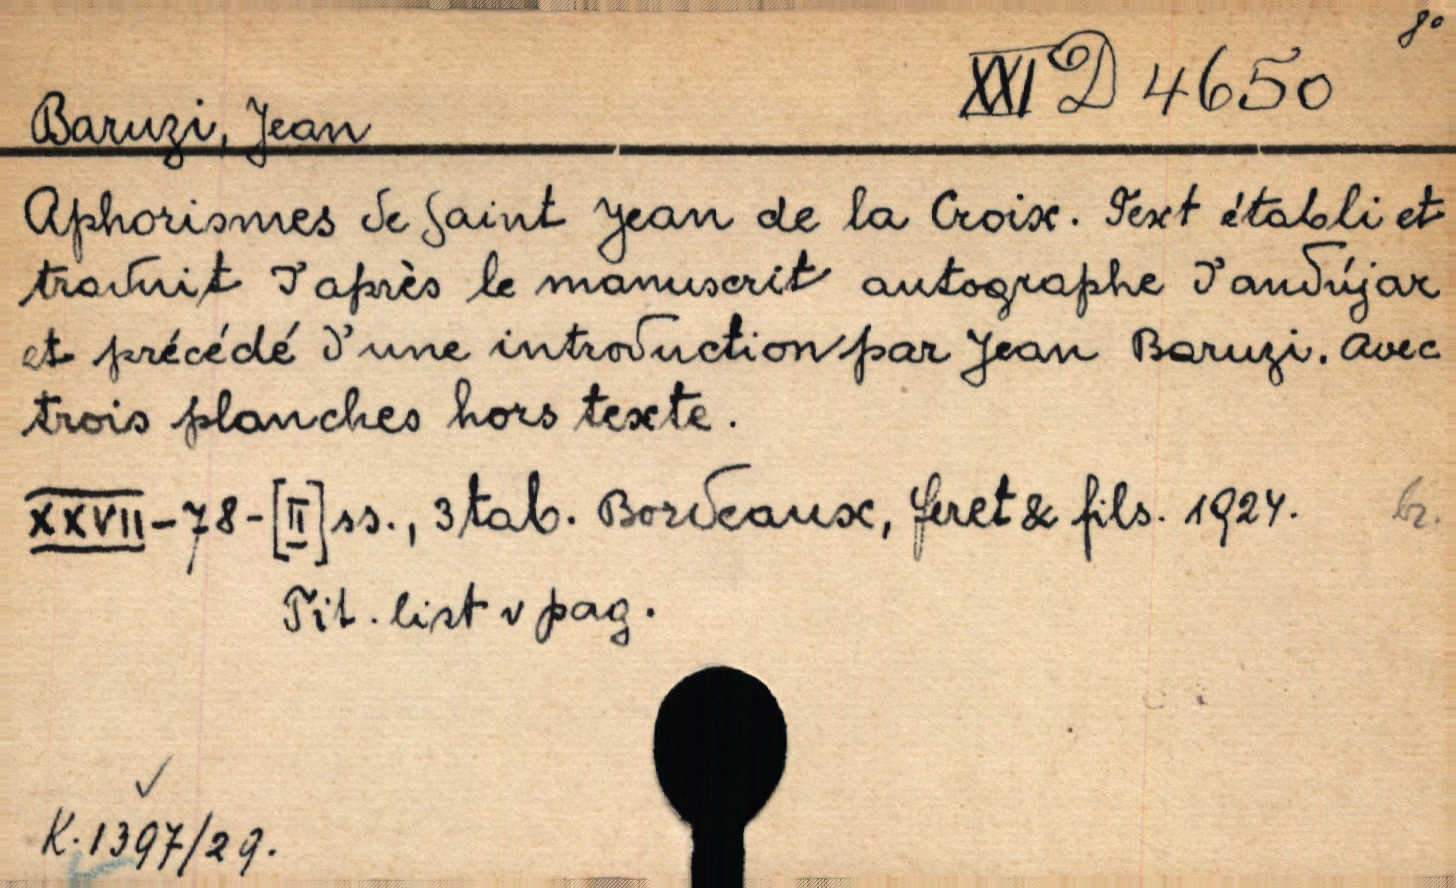 8°
XXI D 4650
Baruzi, Jean
Aphorismes de Saint Jean de la Croix. Text établi et
traduit d'après le manuscrit autographe d'andújar
et précédé d'une introduction par Jean Baruzi. Avec
trois planches hors texte.
XXVII-78-[II] ss., 3 tab. Bordeaux, feret & fils. 1924. br.
Tit. list v pag.
K. 1397/29.